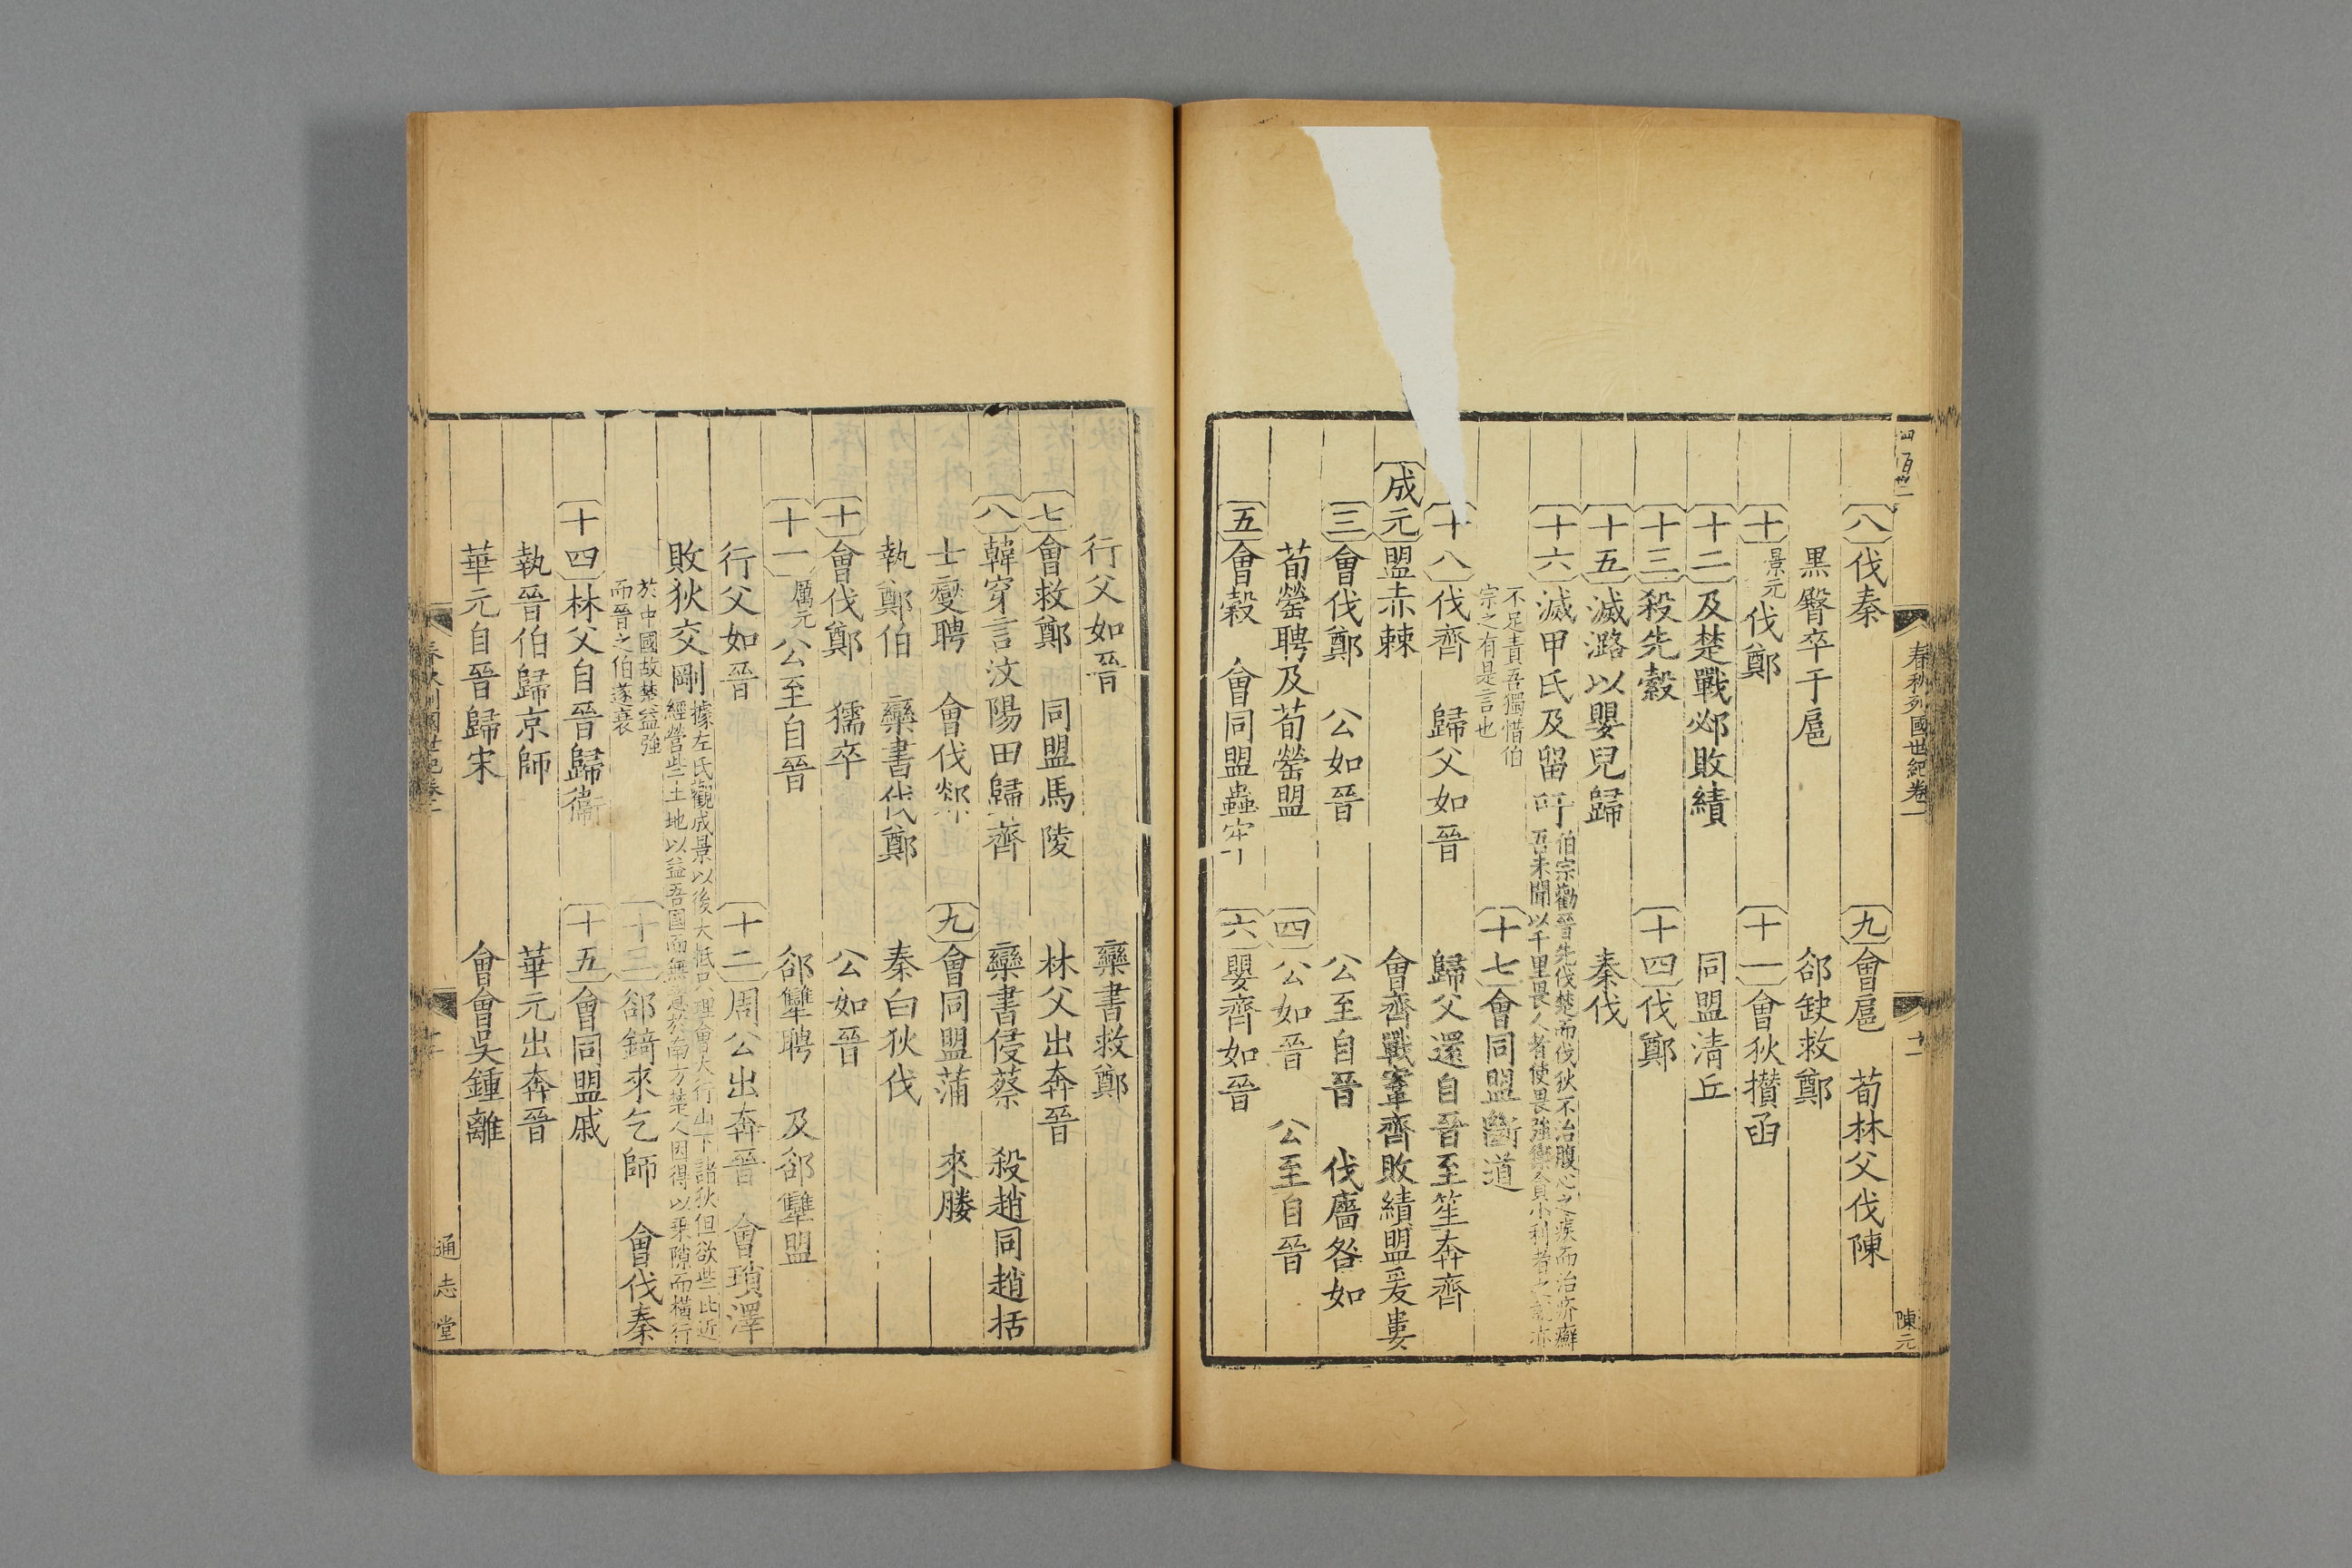 春秋列國世紀卷二
十一
陳元
八 伐秦 九 會扈 荀林父伐陳
黑臀卒于扈 郤缺救鄭
十 景元 伐鄭 十一 會狄攢函
十二 及楚戰邲敗績 同盟清丘
十三 殺先縠 十四 伐鄭
十五 滅潞以嬰兒歸 秦伐
十六 滅甲氏及留吁 伯宗勸晉先伐楚而伐狄不治腹心之疾而治疥癬
吾未聞以千里畏人者使畏強禦貪小利者之亦
不足責吾獨惜伯
宗之有是言也 十七 會同盟斷道
十八 伐齊 歸父如晉 歸父還自晉至笙奔齊
成元 盟赤棘 會齊戰鞌齊敗績盟爰婁
三 會伐鄭 公如晉 公至自晉 伐廧咎如
荀罃聘及荀罃盟 四 公如晉 公至自晉
五 會穀 會同盟蟲牢 六 嬰齊如晉
行父如晉 欒書救鄭
七 會救鄭 同盟馬陵 林父出奔晉
八 韓穿言汶陽田歸齊 欒書侵蔡 殺趙同趙括
士燮聘 會伐郯 九 會同盟蒲 來媵
執鄭伯 欒書伐鄭 秦白狄伐
十 會伐鄭 獳卒 公如晉
十一 厲元 公至自晉 郤犨聘 及郤犨盟
行父如晉 十二 周公出奔晉 會瑣澤
敗狄交剛 據左氏觀成景以後大抵只理會大行山下諸狄但欲些比近
經營些土地以益吾國而無意於南方楚人因得以乘隙而橫行
於中國故楚益強
而晉之伯遂衰 十三 郤錡來乞師 會伐秦
十四 林父自晉歸衞 十五 會同盟戚
執晉伯歸京師 華元出奔晉
華元自晉歸宋 會會吳鍾離
通志堂